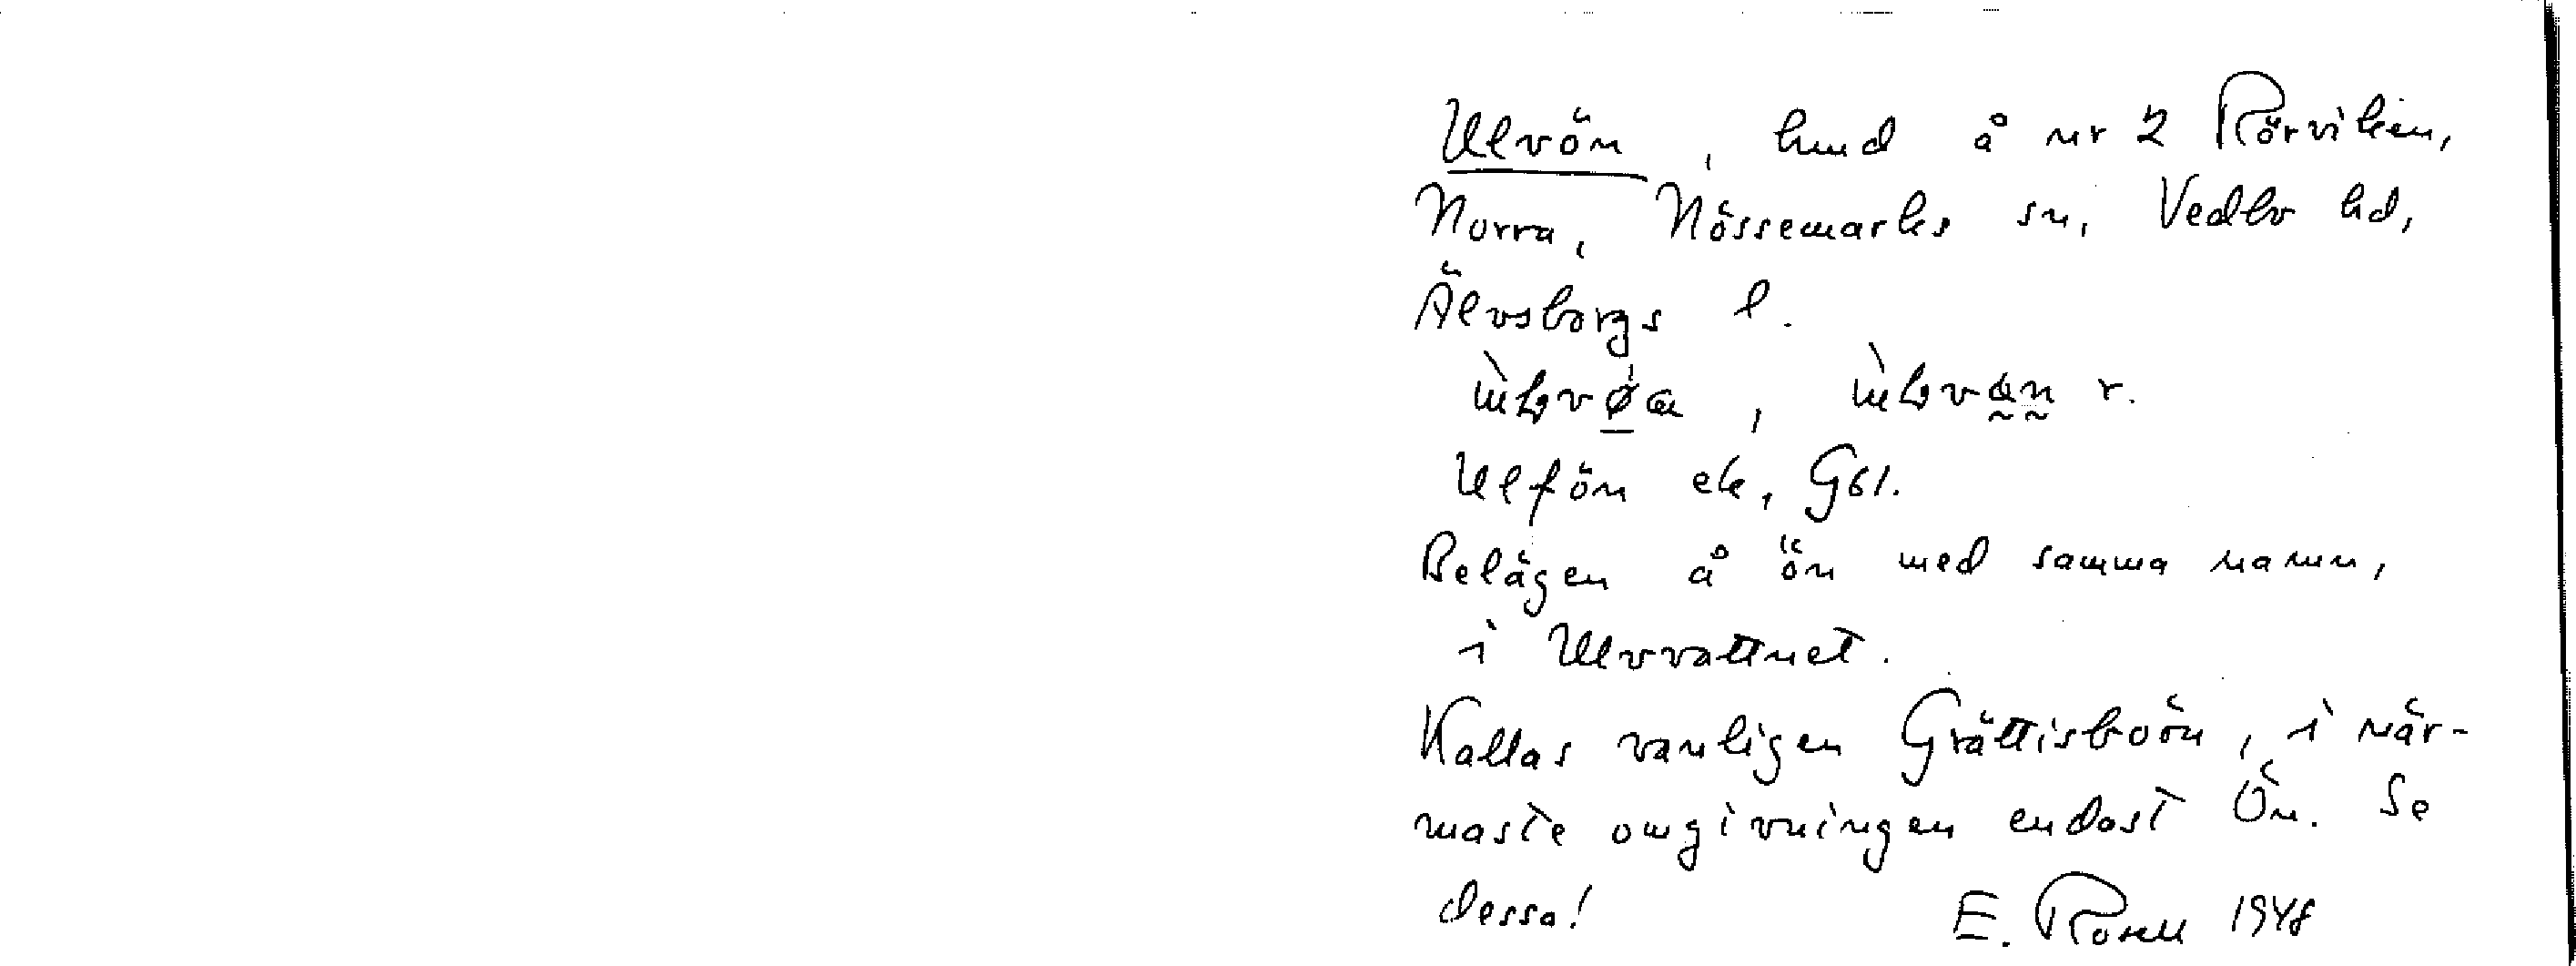 Ulvön, hmd å nr 2 Rörviken,
Norra, Nössemarks sn, Vedbo hd,
Älvsborgs l.
r.
Ulfön ek, G61.
Belägen å ön med samma namn,
i Ulvvattnet.
Kallas vanligen Grättisboön, i när-
maste omgivningen endast Ön. Se
dessa!
E. Rosell 1948